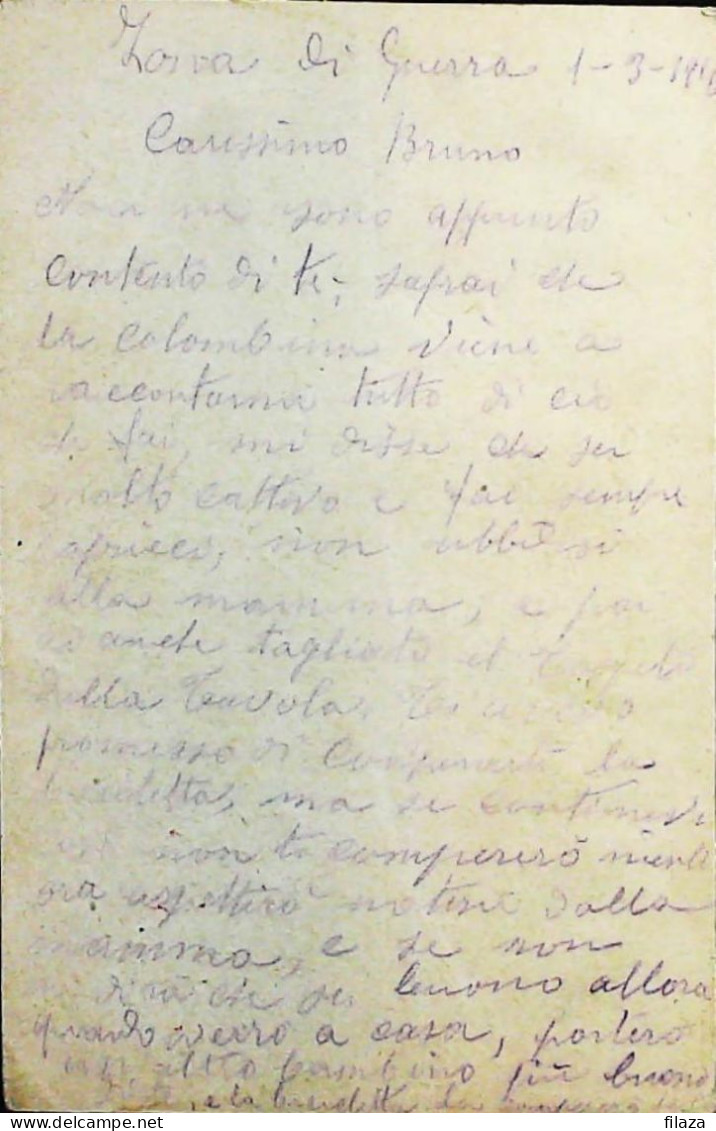 Zona di Guerra 1-3-191
Carissimo Bruno
Non ne sono appunto
contento di te, saprai che
la colombina viene a
raccontarmi tutto di ciò
che fai, mi disse che sei
molto cattivo e fai sempre
capricci, non ubbidisi
alla mamma, e poi
ai anche tagliato il tappeto
della tavola. Ti avevo
promesso di comperarti la
bicicletta, ma se continui
così non ti compererò niente
ora aspetterò notizie dalla
mamma, e se non
mi dirà che sei buono allora
quando verrò a casa, porterò
un altro bambino più buono
di te, e la bicicletta la
filaza